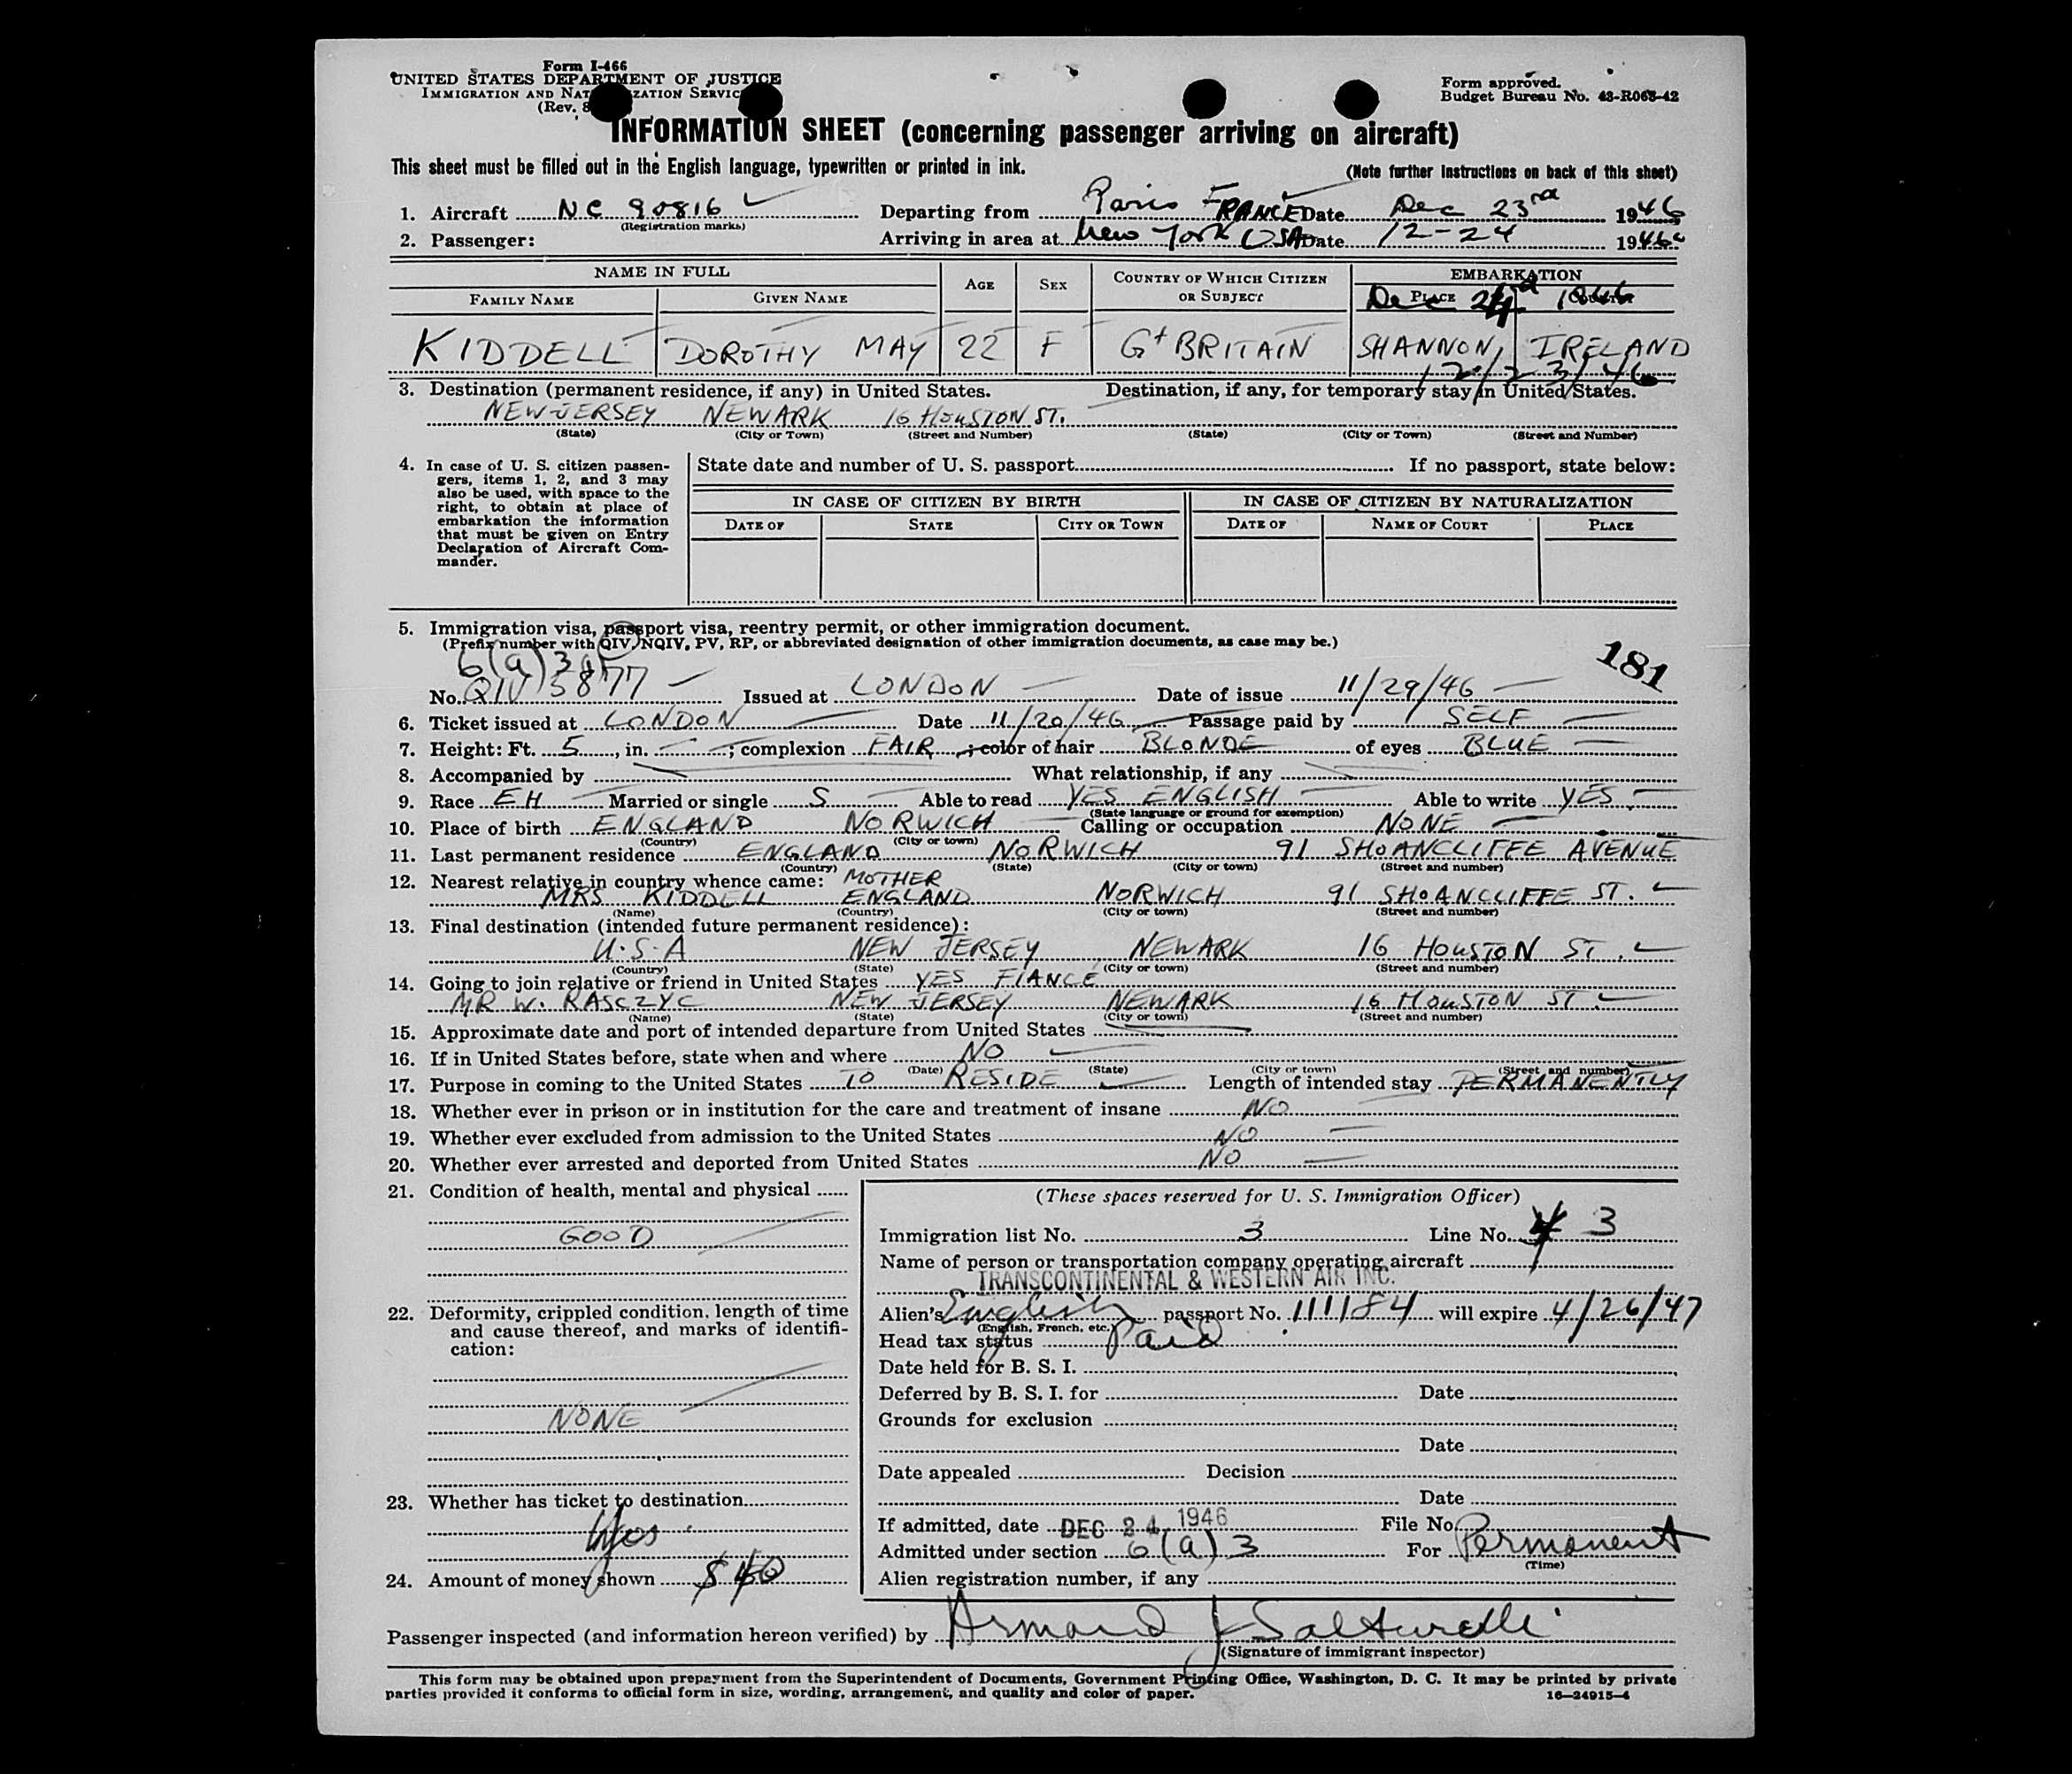 Form I-466
UNITED STATES DEPARTMENT OF JUSTICE
IMMIGRATION AND NATURALIZATION SERVICE
(Rev. 8
Form approved.
Budget Bureau No. 43-R068-42
INFORMATION SHEET (concerning passenger arriving on aircraft)
This sheet must be filled out in the English language, typewritten or printed in ink. (Note further instructions on back of this sheet)
1. Aircraft NC 90816 Departing from Paris FRANCE Date Dec 23rd 1946
(Registration marks)
2. Passenger: Arriving in area at New York USA Date 12-24 1946
NAME IN FULL AGE SEX COUNTRY OF WHICH CITIZEN OR SUBJECT EMBARKATION
FAMILY NAME GIVEN NAME PLACE COUNTRY
Dec 24 1946
KIDDELL DOROTHY MAY 22 F Gt BRITAIN SHANNON, IRELAND
12/23/46
3. Destination (permanent residence, if any) in United States. Destination, if any, for temporary stay in United States.
NEW JERSEY NEWARK 16 HOUSTON ST.
(State) (City or Town) (Street and Number) (State) (City or Town) (Street and Number)
4. In case of U. S. citizen passen-
gers, items 1, 2, and 3 may
also be used, with space to the
right, to obtain at place of
embarkation the information
that must be given on Entry
Declaration of Aircraft Com-
mander.
State date and number of U. S. passport If no passport, state below:
IN CASE OF CITIZEN BY BIRTH IN CASE OF CITIZEN BY NATURALIZATION
DATE OF STATE CITY OR TOWN DATE OF NAME OF COURT PLACE
5. Immigration visa, passport visa, reentry permit, or other immigration document.
(Prefix number with QIV, NQIV, PV, RP, or abbreviated designation of other immigration documents, as case may be.)
181
6(a)3
No. QIV 5877 Issued at LONDON Date of issue 11/29/46
6. Ticket issued at LONDON Date 11/20/46 Passage paid by SELF
7. Height: Ft. 5, in. ; complexion FAIR ; color of hair BLONDE of eyes BLUE
8. Accompanied by What relationship, if any
9. Race EH Married or single S Able to read YES ENGLISH Able to write YES
(State language or ground for exemption)
10. Place of birth ENGLAND NORWICH Calling or occupation NONE
(Country) (City or town)
11. Last permanent residence ENGLAND NORWICH 91 SHOANCLIFFE AVENUE
(Country) (State) (City or town) (Street and number)
12. Nearest relative in country whence came: MOTHER
MRS KIDDELL ENGLAND NORWICH 91 SHOANCLIFFE ST.
(Name) (Country) (City or town) (Street and number)
13. Final destination (intended future permanent residence):
U.S.A NEW JERSEY NEWARK 16 HOUSTON ST.
(Country) (State) (City or town) (Street and number)
14. Going to join relative or friend in United States YES FIANCÉ
MR W. RASCZYC NEW JERSEY NEWARK 16 HOUSTON ST.
(Name) (State) (City or town) (Street and number)
15. Approximate date and port of intended departure from United States
16. If in United States before, state when and where NO
(Date) (State) (City or town) (Street and number)
17. Purpose in coming to the United States TO RESIDE Length of intended stay PERMANENTLY
18. Whether ever in prison or in institution for the care and treatment of insane NO
19. Whether ever excluded from admission to the United States NO
20. Whether ever arrested and deported from United States NO
21. Condition of health, mental and physical
GOOD
22. Deformity, crippled condition, length of time
and cause thereof, and marks of identifi-
cation:
NONE
23. Whether has ticket to destination
Yes
24. Amount of money shown $40
(These spaces reserved for U. S. Immigration Officer)
Immigration list No. 3 Line No. 3
Name of person or transportation company operating aircraft
TRANSCONTINENTAL & WESTERN AIR INC.
Alien's English passport No. 111184 will expire 4/26/47
(English, French, etc.)
Head tax status Paid
Date held for B. S. I.
Deferred by B. S. I. for Date
Grounds for exclusion
Date
Date appealed Decision
Date
If admitted, date DEC 24 1946 File No.
Admitted under section 6(a)3 For Permanent
(Time)
Alien registration number, if any
Passenger inspected (and information hereon verified) by Armand J Salturelli
(Signature of immigrant inspector)
This form may be obtained upon prepayment from the Superintendent of Documents, Government Printing Office, Washington, D. C. It may be printed by private
parties provided it conforms to official form in size, wording, arrangement, and quality and color of paper. 16—24915-4